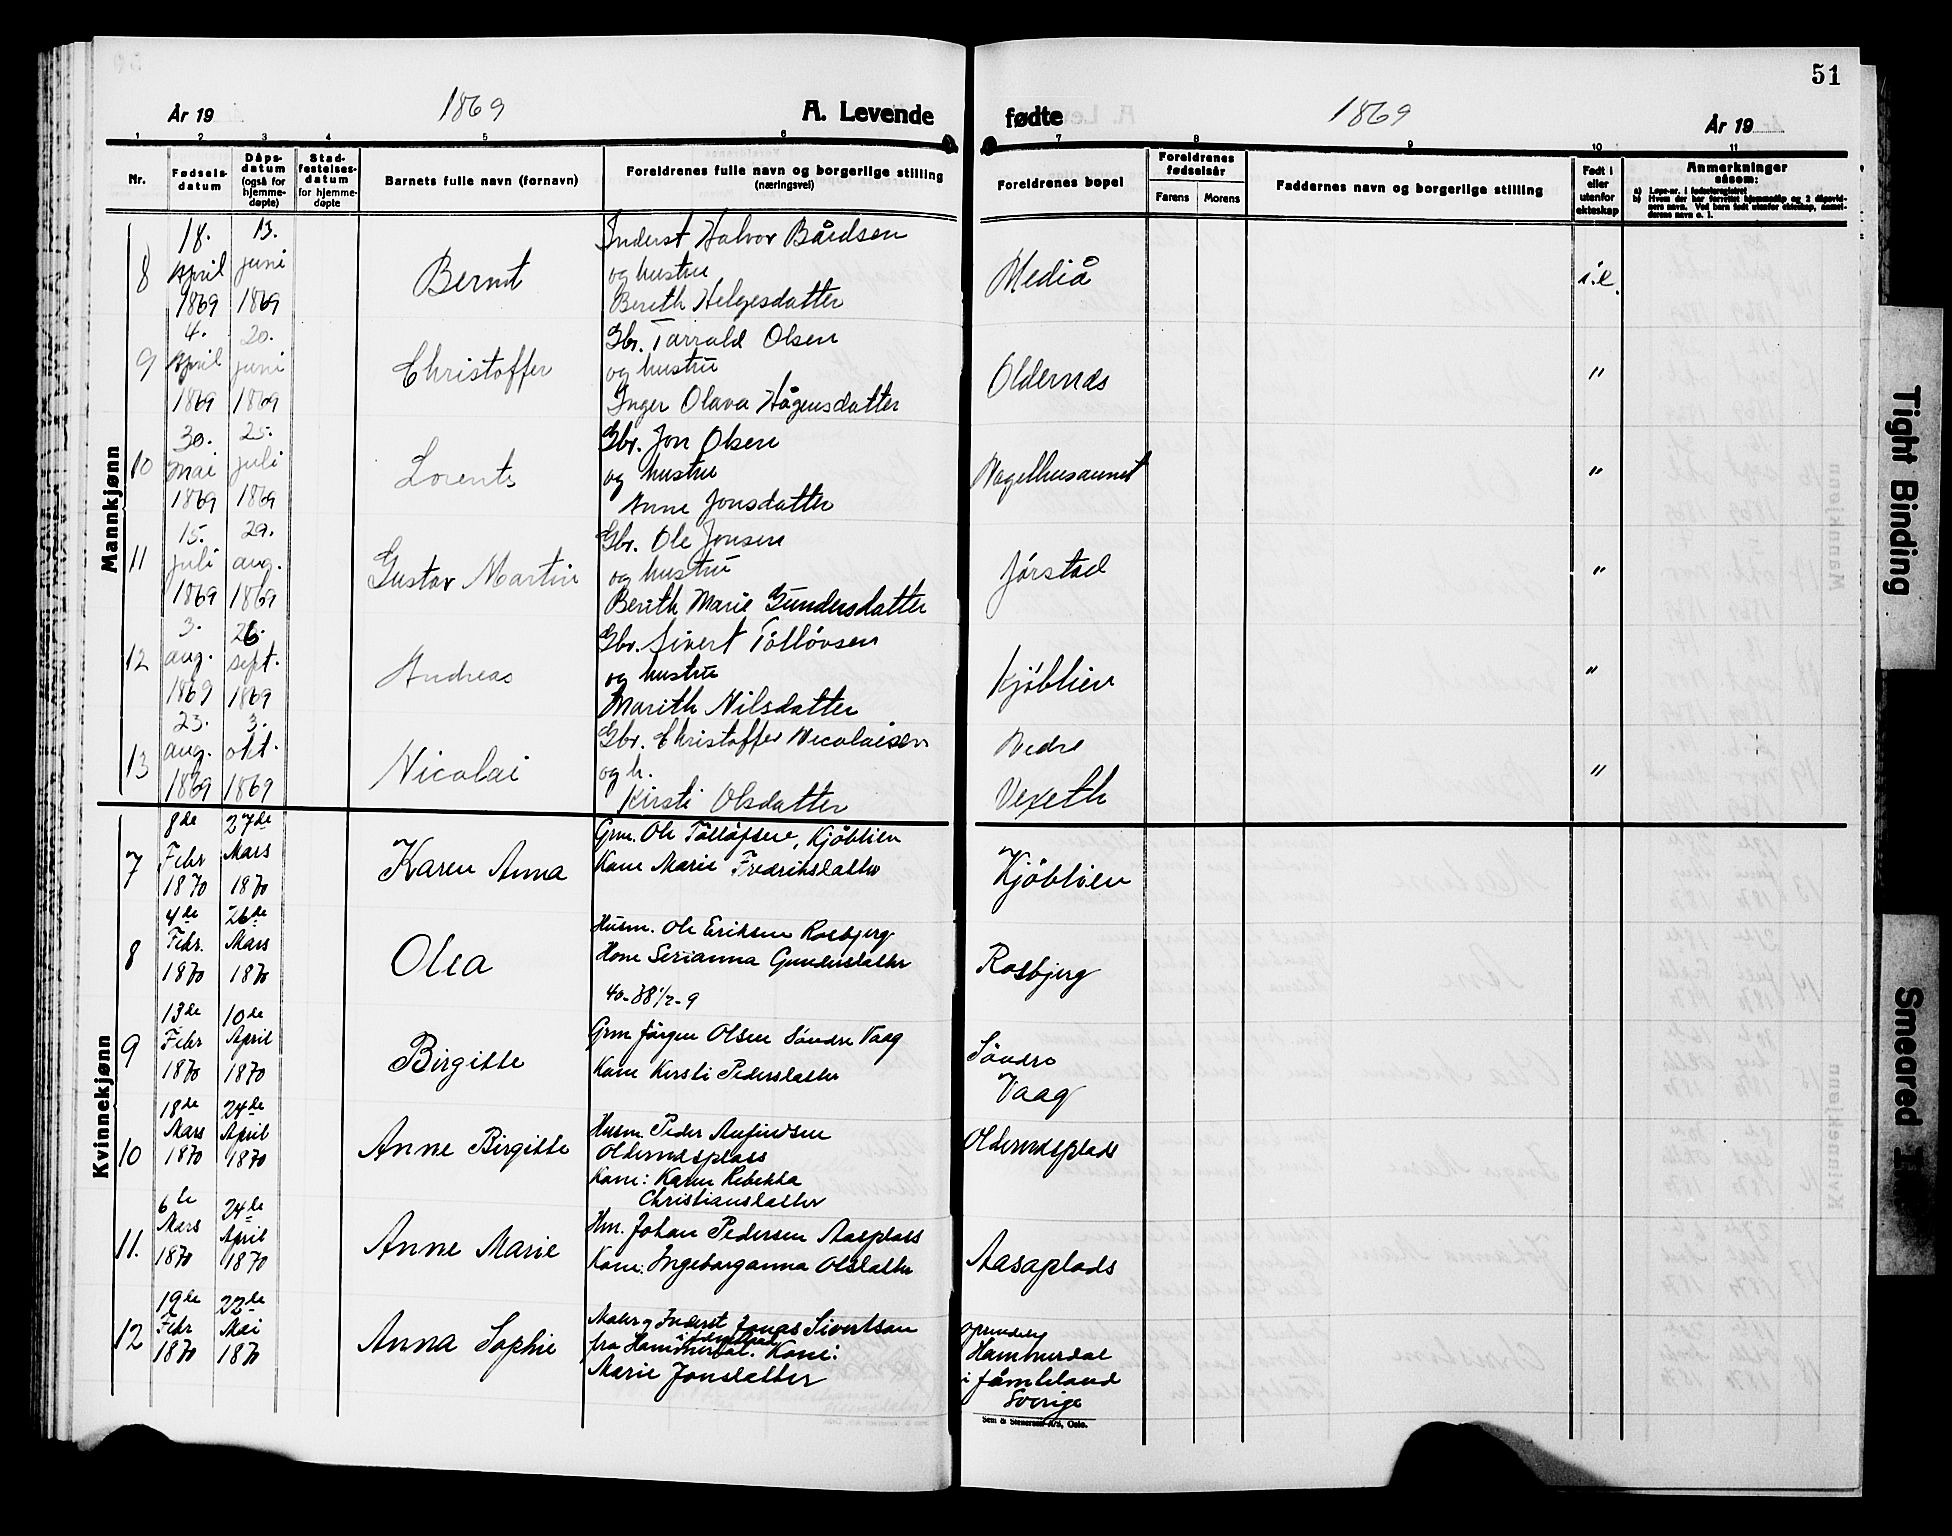 51
År 19 1869 A. Levende
fødte 1869 År 19
1 2 3 4 5 6 7 8 9 10 11
Nr. Fødselsdatum Dåpsdatum (også for hjemmedøpte) Stadfestelsesdatum for hjemmedøpte Barnets fulle navn (fornavn) Foreldrenes fulle navn og borgerlige stilling (næringsvei)
Foreldrenes bopel Foreldrenes fødselsår Farens Morens Faddernes navn og borgerlige stilling Født i eller utenfor ekteskap Anmerkninger såsom:
Mannkjønn
8 18. April 1869 13. juni 1869 Bernt
Inderst Halvor Bårdsen
og hustru
Bereth Helgesdatter
Mediå i.e.
9 4. April 1869 20. juni 1869 Christoffer
Gbr. Tarrald Olsen
og hustru
Inger Olava Hågensdatter
Oldernæs "
10 30. mai 1869 25. juli 1869 Lorents
Gbr. Jon Olsen
og hustru
Anne Jonsdatter
Nagelhusaunet "
11 15. juli 1869 29. aug. 1869 Gustav Martin
Gbr. Ole Jonsen
og hustru
Berith Marie Gundersdatter
Jørstad "
12 3. aug. 1869 26. sept. 1869 Andreas
Gbr. Sivert Tølløvsen
og hustru
Marith Nilsdatter
Kjøblien "
13 23. aug. 1869 3. okt. 1869 Nicolai
Gbr. Christoffer Nicolaisen
og h.
Kirsti Olsdatter
Nedre
Vexeth "
Kvinnekjønn
7 8de Febr 1870 27de Mars 1870 Karen Anna
Grm. Ole Tølløfsen, Kjøblien
Kone Marie Fredriksdatter
Kjøblien
8 4de Febr. 1870 26de Mars 1870 Olea
Husm. Ole Eriksen Rosbjerg
Kone Serianna Gundersdatter
40-38 1/2-9
Rosbjerg
9 13de Febr 1870 10de April 1870 Birgitte
Grm Jørgen Olsen Søndre Vaag
Kone Kersti Pedersdatter
Søndre
Vaag
10 18de Mars 1870 24de April 1870 Anne Birgitte
Husm Peder Anfindsen
Oldernæsplass
Kone: Karen Rebekka
Christiansdatter
Oldernæsplads
11. 6te Mars 1870 24de April 1870 Anne Marie
Hm. Johan Pedersen Aasplass
Kone: Ingeborganna Olsdatter
Aasaplads
12 19de Febr 1870 22de Mai 1870 Anna Sophie
Maler og Inderst Jonas Sivertsen
fra Hammerdal i Jemtland. Kone:
Marie Jonsdatter
Hammerdal
i Jämteland
Sverige
Sem & Stenersen A/s, Oslo.
Tight Binding
Smeared